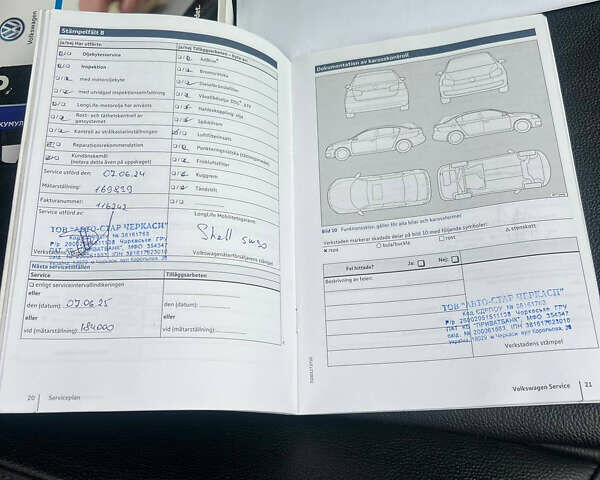 Volkswagen
Stämpelfält 8
Ja/nej Har utförts:
Ja/nej Tilläggsarbeten – byte av:
Oljebytesservice
Inspektion
med motoroljebyte
med utvidgad inspektionsomfattning
LongLife-motorolja har använts
Rost- och täthetskontroll av gassystemet
Kontroll av strålkastarinställningen
Reparationsrekommendation
Kundönskemål
(notera detta även på uppdraget)
AdBlue®
Bromsvätska
Dieselbränslefilter
Växellådsolja DSG®
Haldexkoppling: olja
Tändstift
Luftfilterinsats
Friskluftsfilter
Kuggrem
Service utförd den: 07.06.24
Mätarställning: 169839
Fakturanummer: 116243
Service utförd av:
LongLife Mobilitetsgaranti
Shell 5w30
ТОВ "АВТО-СТАР ЧЕРКАСИ"
Volkswagenåterförsäljarens stängel
Nästa servicetillfällen
Service
Tilläggsarbeten
enligt serviceintervallindikeringen
eller
den (datum): 07.06.25
den (datum):
eller
eller
vid (mätarställning): 184000
vid (mätarställning):
20
Serviceplan
Dokumentation av karosskontroll
Bild 10 Funktionsskiss: gäller för alla bilar och karossformer
Verkstaden markerar skadade delar på bild 10 med följande symboler:
× repa
○ bula/buckla
□ rost
△ stenskott
Fel hittade?
Ja:
Nej:
Beskrivning av felen:
ТОВ "АВТО-СТАР ЧЕРКАСИ"
Код ЄДРПОУ № 38161763
ПАТ КБ "ПРИВАТБАНК", МФО 354347
Verkstadens stämpel
Volkswagen Service
21